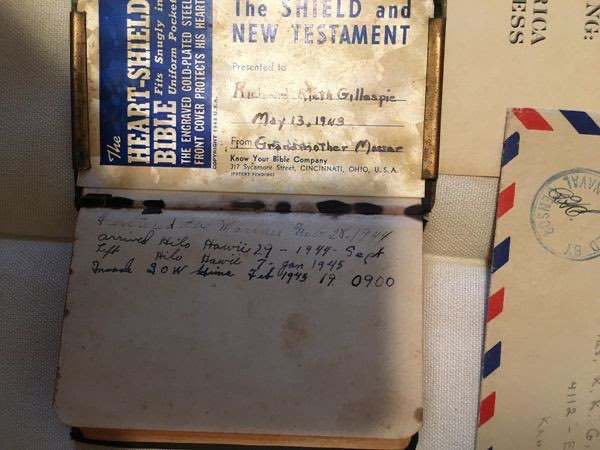 The
HEART-SHIELD
BIBLE Fits Snugly in
Uniform Pocket
THE ENGRAVED GOLD-PLATED STEEL
FRONT COVER PROTECTS HIS HEART
The SHIELD and
NEW TESTAMENT
Presented to
Richard Gillespie
May 13, 1943
From Grandmother Moser
Know Your Bible Company
317 Sycamore Street, CINCINNATI, OHIO, U.S.A.
(PATENT PENDING)
28, 1944
arrived Hilo Hawie 29 - 1944 - Sept
Left Hilo Hawie 7 - Jan 1945
Invade Feb 1945 19 0900
NG:
RICA
ESS
NAVAL
BY
4112